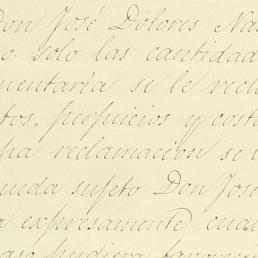 Don José Dolores Na
o solo las cantidad
mentaria se le recl
tos, perjuicios y cost
ha reclamacion se
ueda sujeto Don José
a expresamente cual
aso pudiera favorece